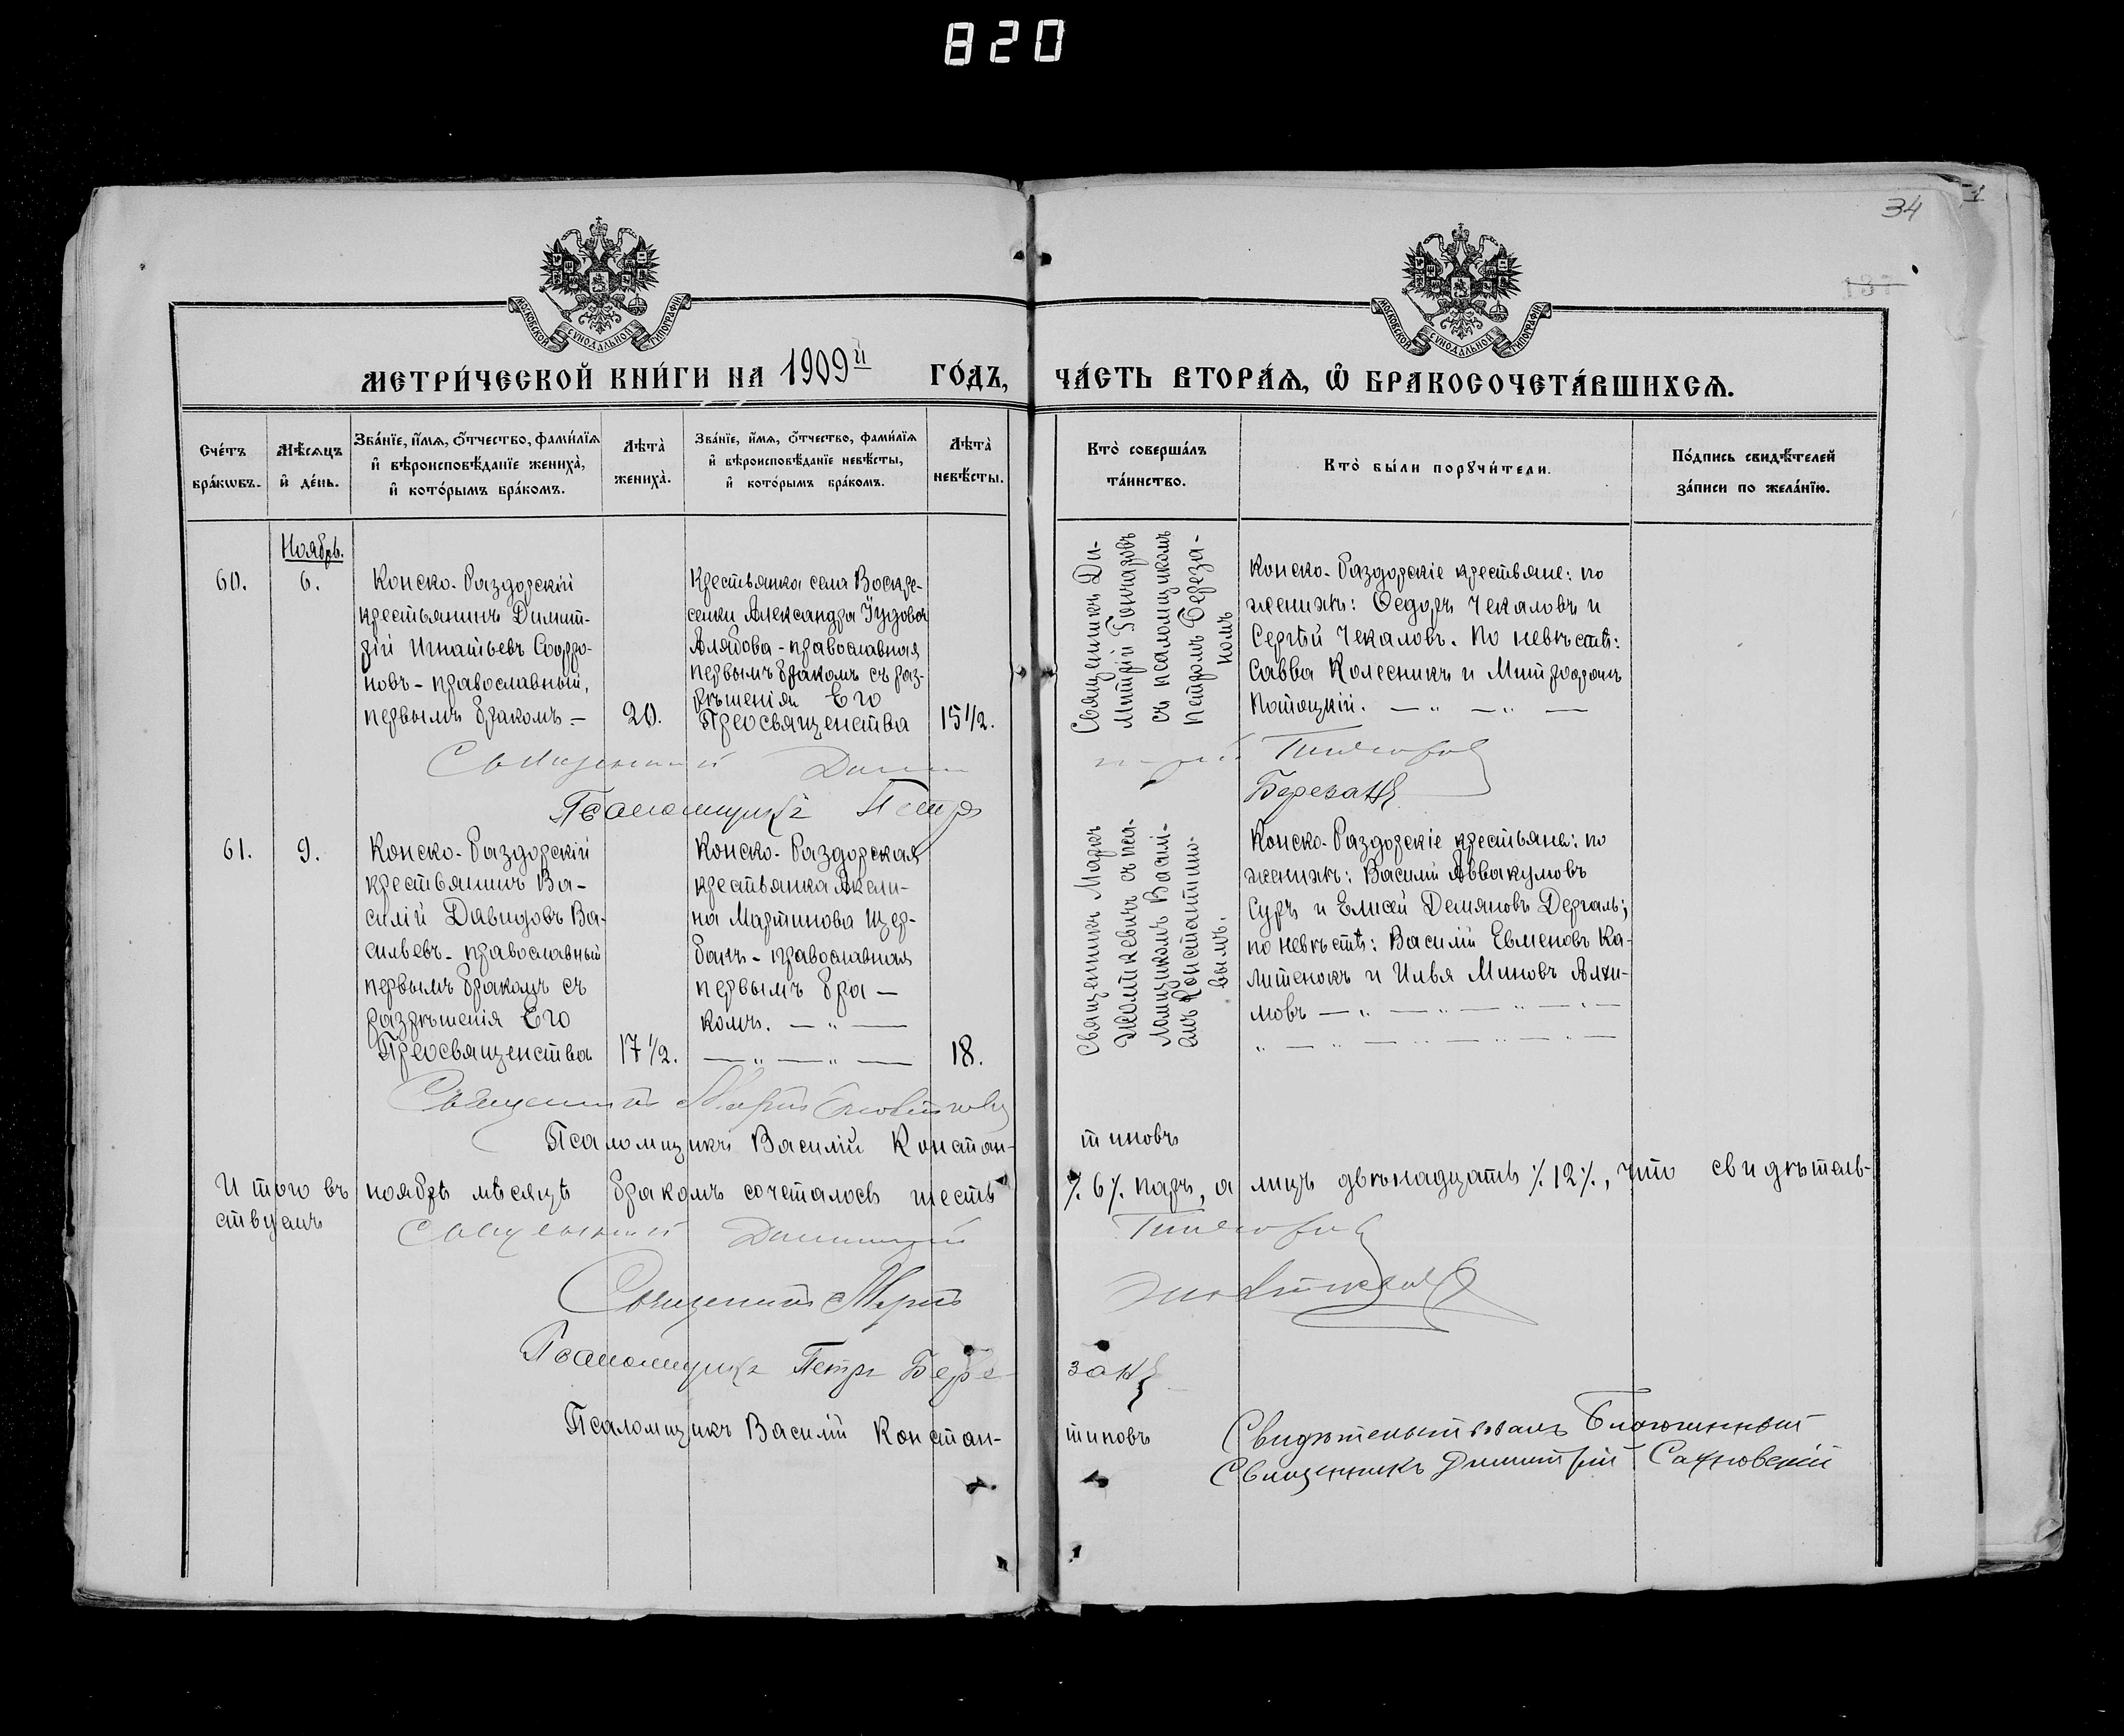 820
34
МОСКОВСКОЙ СѴНОДАЛЬНОЙ ТИПОГРАФІИ
МОСКОВСКОЙ СѴНОДАЛЬНОЙ ТИПОГРАФІИ
МЕТРИ́ЧЕСКОЙ КНИ́ГИ НА 1909й ГО́ДЪ, ЧА́СТЬ ВТОРА́Ѧ, Ѽ БРАКОСОЧЕТА́ВШИХСѦ.
Сче́тъ бра́кѡвъ.
Мѣ́сѧцъ и҆ де́нь.
Зва́нїе, и҆́мѧ, ѻ҆́тчество, фами́лїѧ
и҆ вѣроисповѣ́данїе жениха̀,
и҆ кото́рымъ бра́комъ.
Лѣта̀ жениха̀.
Зва́нїе, и҆́мѧ, ѻ҆́тчество, фами́лїѧ
и҆ вѣроисповѣ́данїе невѣ́сты,
и҆ кото́рымъ бра́комъ.
Лѣта̀ невѣ́сты.
Кто̀ соверша́лъ та́инство.
Кто̀ бы́ли порꙋчи́тели.
По́дпись свидѣ́телей
за́писи по жела́нїю.
Ноябрь.
60.
6.
Конско-Раздорскій
крестьянинъ Димит-
рій Игнатьевъ Софро-
новъ - православный,
первымъ бракомъ —
20.
Крестьянка села Воскре-
сенки Александра Іудова
Алябова - православная
первымъ бракомъ съ раз-
рѣшенія Его
Преосвященства
15 1/2.
Священникъ Ди-
митрій Гончаровъ
съ псаломщикомъ
Петромъ Береза-
номъ
Конско-Раздорскіе крестьяне: по
женихѣ: Ѳедоръ Чекаловъ и
Сергѣй Чекаловъ. По невѣстѣ:
Савва Колесникъ и Митрофанъ
Потоцкій. — „ — „ —
Псаломщикъ Петръ
61.
9.
Конско-Раздорскій
крестьянинъ Ва-
силій Давидовъ Ва-
сильевъ - православный
первымъ бракомъ съ
разрѣшенія Его
Преосвященства
17 1/2.
Конско-Раздорская
крестьянка Акели-
на Мартинова Щер-
бань - православная
первымъ бра-
комъ. — „ —
— „ — „ —
18.
Священникъ Маркъ
съ пса-
ломщикомъ Василі-
емъ Константино-
вымъ.
Конско-Раздорскіе крестьяне: по
женихѣ: Василій Аввакумовъ
Суръ и Елисей Демяновъ Дергаль;
по невѣстѣ: Василій Евменовъ Ка-
литенокъ и Илья Миновъ Алхи-
мовъ — „ — „ — „ — „ —
„ — „ — „ — „ — „ —
Псаломщикъ Василій Констан-
тиновъ
Итого въ ноябрѣ мѣсяцѣ бракомъ сочеталось шесть ٪ 6 ٪ паръ, а лицъ двѣнадцать ٪ 12 ٪, что свидѣтель-
ствуемъ
Священникъ Димитрій
Священникъ Маркъ
Псаломщикъ Петръ Бере-
занъ
Псаломщикъ Василій Констан-
тиновъ
Свидѣтельствовалъ Благочинный
Священникъ Димитрій Сахновскій